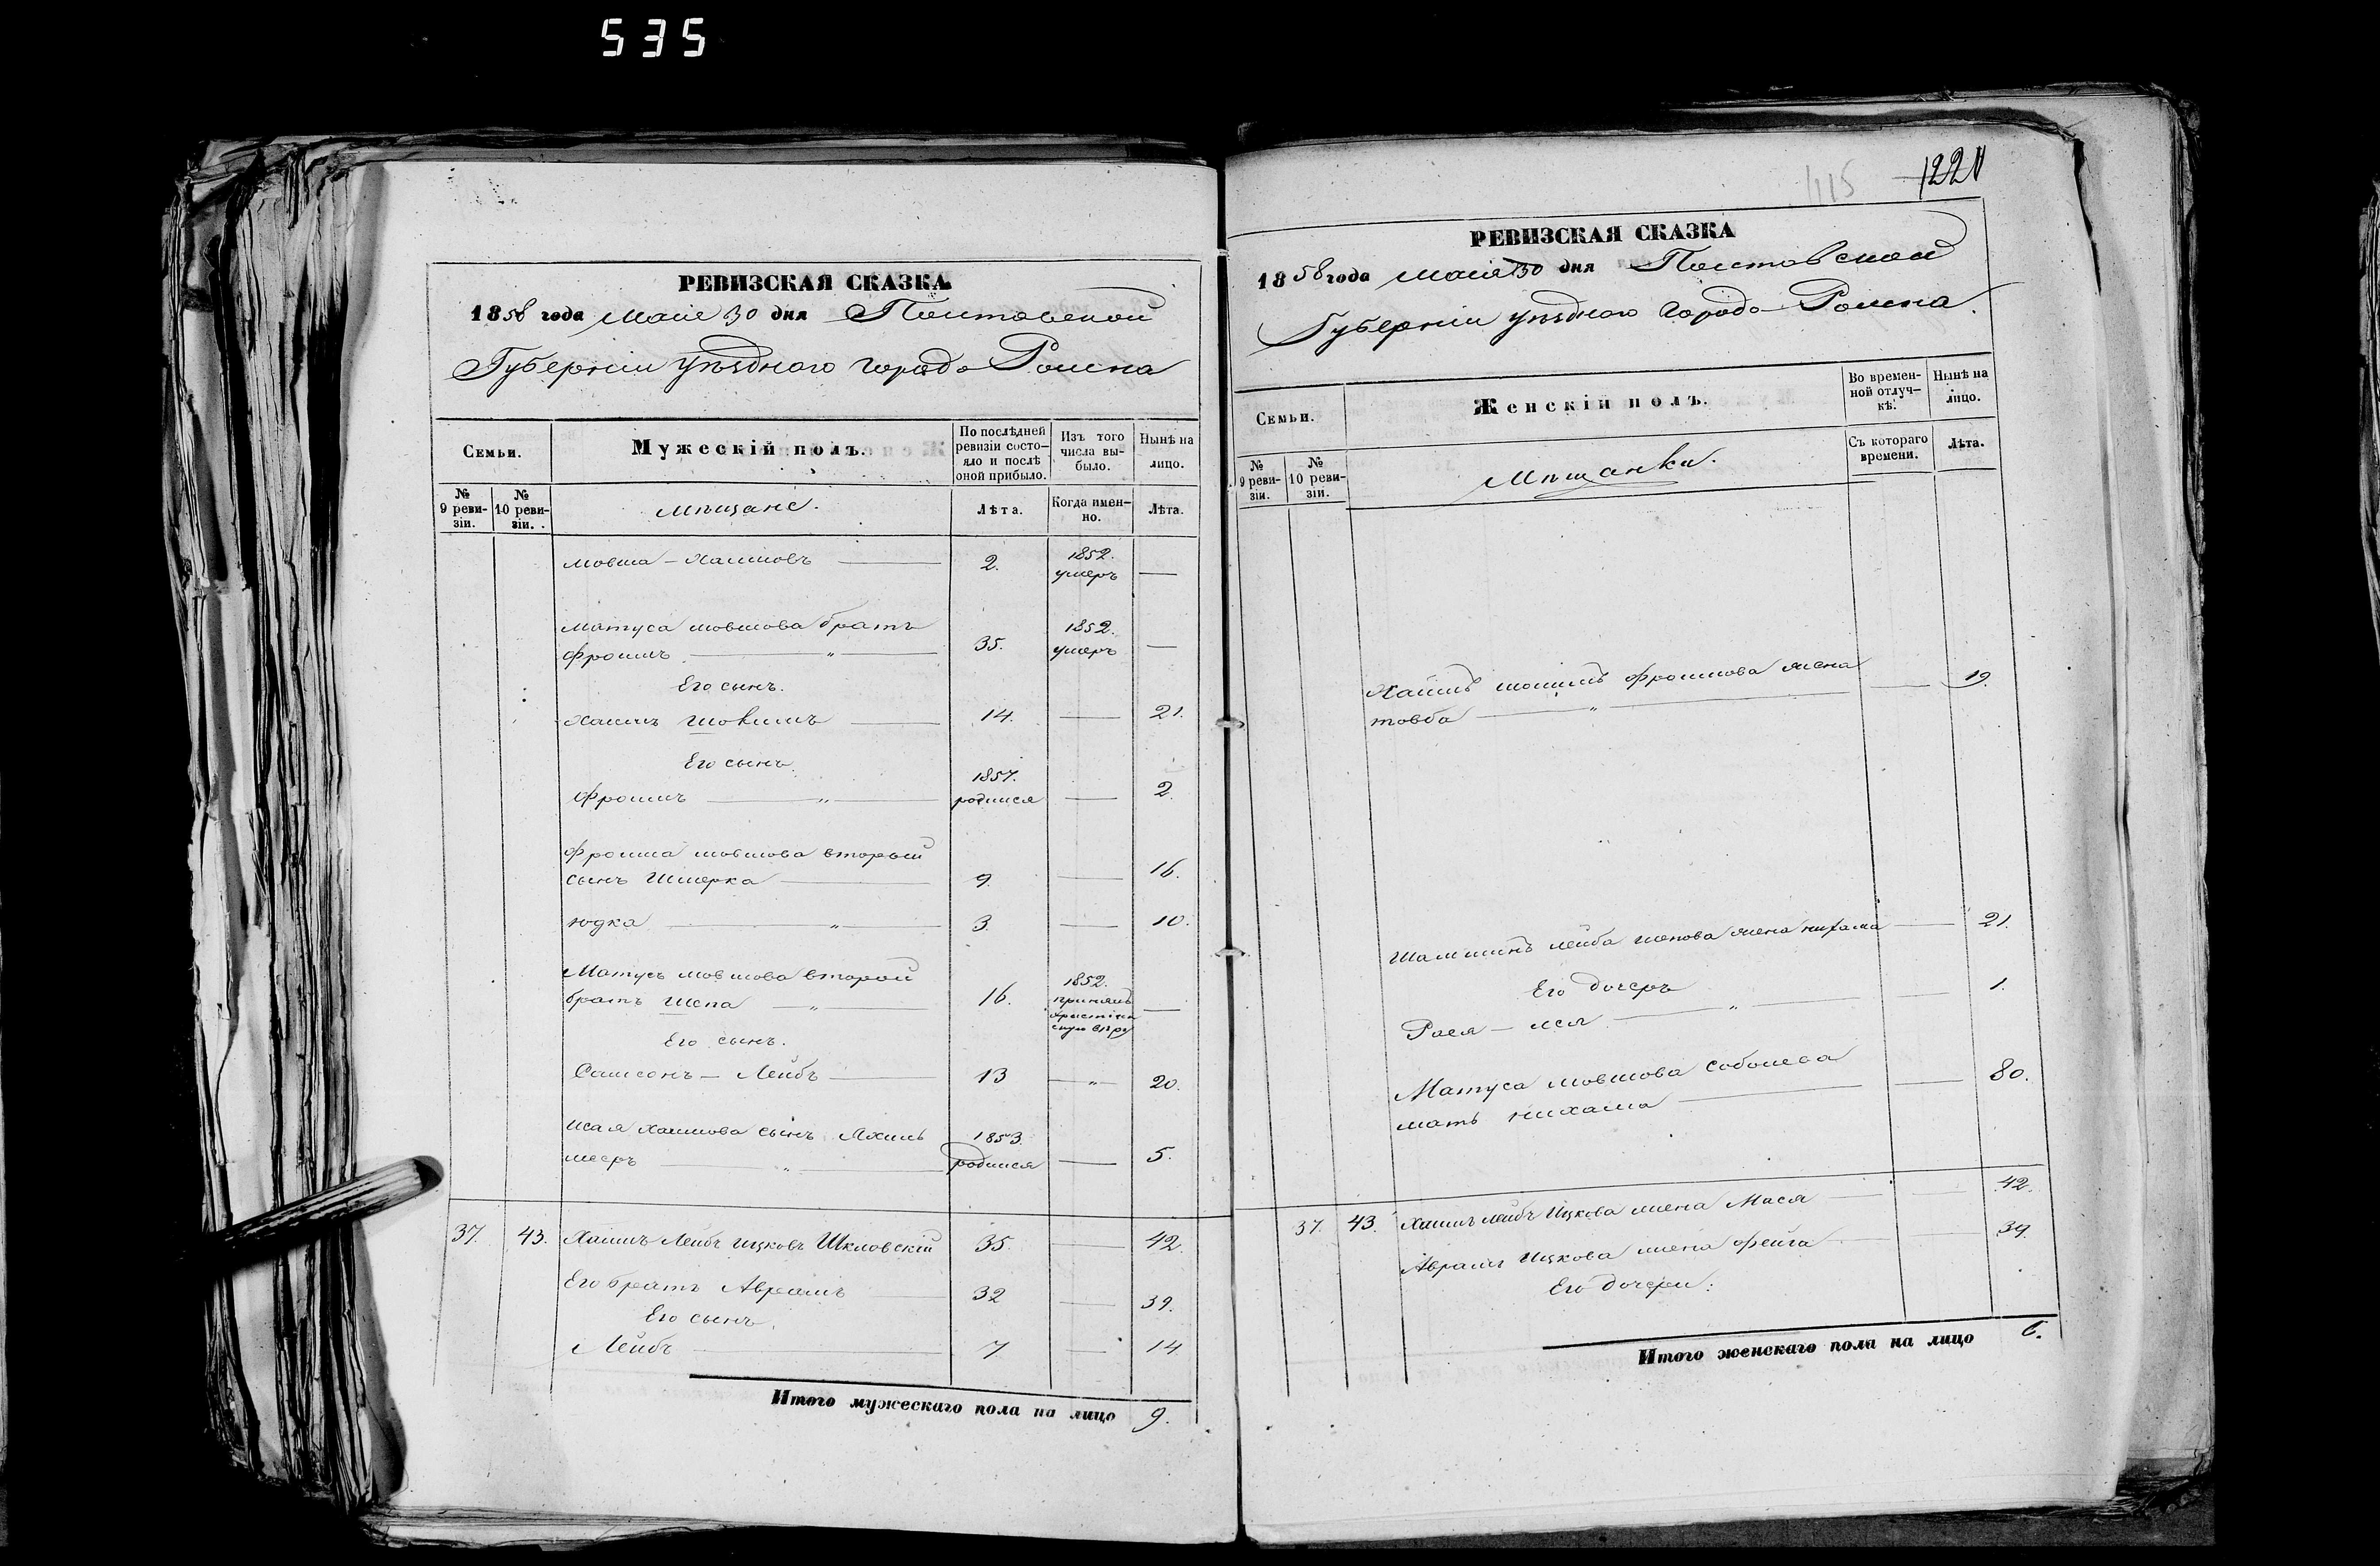 535
РЕВИЗСКАЯ СКАЗКА
1858 года Маія 30 дня Полтавской
Губерніи уѣзднаго города Ромна
Семьи.
Мужескій полъ.
По послѣдней ревизіи состояло и послѣ оной прибыло.
Изъ того числа выбыло.
Нынѣ на лицо.
№ 9 ревизіи.
№ 10 ревизіи.
Мѣщане.
Лѣта.
Когда именно.
Лѣта.
Мовша – Хаимовъ 2. 1852. умеръ —
Матуса Мовшова братъ
Фроимъ " 35. 1852. умеръ —
Его сынъ.
Хаимъ 14. — 21.
Его сынъ
Фроимъ " 1857. родился — 2.
Фроима Мовшова вторый
сынъ Шмерка 9. — 16.
Юдка " 3. — 10.
Матуса Мовшова второй
братъ Шепа " 16. 1852. принялъ христіанскую вѣру —
Его сынъ.
Самсонъ – Лейбъ 13 — " — 20.
Исая Хаимова сынъ
мееръ " 1853. родился — 5.
37. 43. Хаимъ Лейбъ Ицковъ Шкловскій 35. — 42.
Его братъ Аврамъ 32 — 39.
Его сынъ.
Лейбъ 7 — 14
Итого мужескаго пола на лицо 9.
115 1221
РЕВИЗСКАЯ СКАЗКА
1858 года Маія 30 дня Полтавской
Губерніи уѣзднаго города Ромна.
Семьи.
Женскій полъ.
Во временной отлучкѣ.
Нынѣ на лицо.
№ 9 ревизіи.
№ 10 ревизіи.
Мѣщанки.
Съ котораго времени.
Лѣта.
Хаимъ Фроимова жена — 19.
товба "
Лейба Шепова жена нихама — 21.
Его дочерь
Рося – лея " — 1.
Матуса Мовшова Соболева
мать нихама — 80.
37. 43. Хаимъ Лейбъ Ицкова жена Мася — 42.
Аврамъ Ицкова жена Фейга — 39.
Его дочери:
Итого женскаго пола на лицо 6.